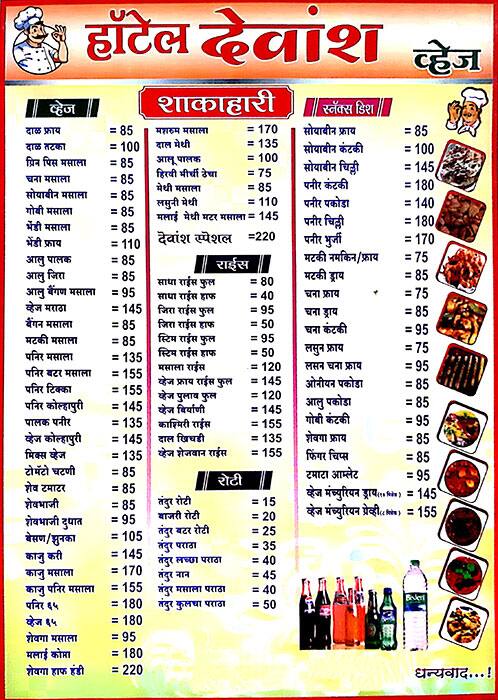 हॉटेल देवांश
व्हेज
शाकाहारी
व्हेज
दाळ फ्राय = 85
दाळ तटका = 100
ग्रिन पिस मसाला = 85
चना मसाला = 85
सोयाबीन मसाला = 85
गोबी मसाला = 85
भेंडी मसाला = 85
भेंडी फ्राय = 110
आलु पालक = 85
आलु जिरा = 85
आलु बैंगण मसाला = 95
व्हेज मराठा = 145
बैंगन मसाला = 85
मटकी मसाला = 85
पनिर मसाला = 135
पनिर बटर मसाला = 155
पनिर टिक्का = 155
पनिर कोल्हापुरी = 145
पालक पनीर = 135
व्हेज कोल्हापुरी = 145
मिक्स व्हेज = 135
टोमॅटो चटणी = 85
शेव टमाटर = 85
शेवभाजी = 85
शेवभाजी दुधात = 95
बेसण/झुनका = 105
काजु करी = 145
काजु मसाला = 170
काजु पनिर मसाला = 155
पनिर ६५ = 180
व्हेज ६५ = 180
शेवगा मसाला = 95
मलाई कोफ्ता = 180
शेवगा हाफ हंडी = 220
मशरुम मसाला = 170
दाल मेथी = 135
आलू पालक = 100
हिरवी मीर्ची ठेचा = 75
मेथी मसाला = 85
लसुनी मेथी = 110
मलाई मेथी मटर मसाला = 145
देवांश स्पेशल =220
राईस
साधा राईस फुल = 80
साधा राईस हाफ = 40
जिरा राईस फुल = 95
जिरा राईस हाफ = 50
स्टिम राईस फुल = 95
स्टिम राईस हाफ = 50
मसाला राईस = 120
व्हेज फ्राय राईस फुल = 145
व्हेज पुलाव फुल = 120
व्हेज बिर्याणी = 145
काश्मिरी राईस = 155
दाल खिचडी = 135
व्हेज शेजवान राईस = 155
रोटी
तंदुर रोटी = 15
बाजरी रोटी = 20
तंदुर बटर रोटी = 25
तंदुर पराठा = 35
तंदुर लच्छा पराठा = 40
तंदुर नान = 45
तंदुर मसाला पराठा = 40
तंदुर कुलचा पराठा = 50
स्नॅक्स डिश
सोयाबीन फ्राय = 85
सोयाबीन कंटकी = 100
सोयाबीन चिल्ली = 145
पनीर कंटकी = 180
पनीर पकोडा = 140
पनीर चिल्ली = 180
पनीर भुर्जी = 170
मटकी नमकिन/फ्राय = 75
मटकी ड्राय = 85
चना फ्राय = 75
चना ड्राय = 85
चना कंटकी = 95
लसुन फ्राय = 75
लसन चना फ्राय = 95
ओनीयन पकोडा = 85
आलु पकोडा = 85
गोबी कंटकी = 95
शेवगा फ्राय = 85
फिंगर चिप्स = 85
टमाटा आम्लेट = 95
व्हेज मंच्युरियन ड्राय = 145
व्हेज मंच्युरियन ग्रेव्ही = 155
धन्यवाद...!